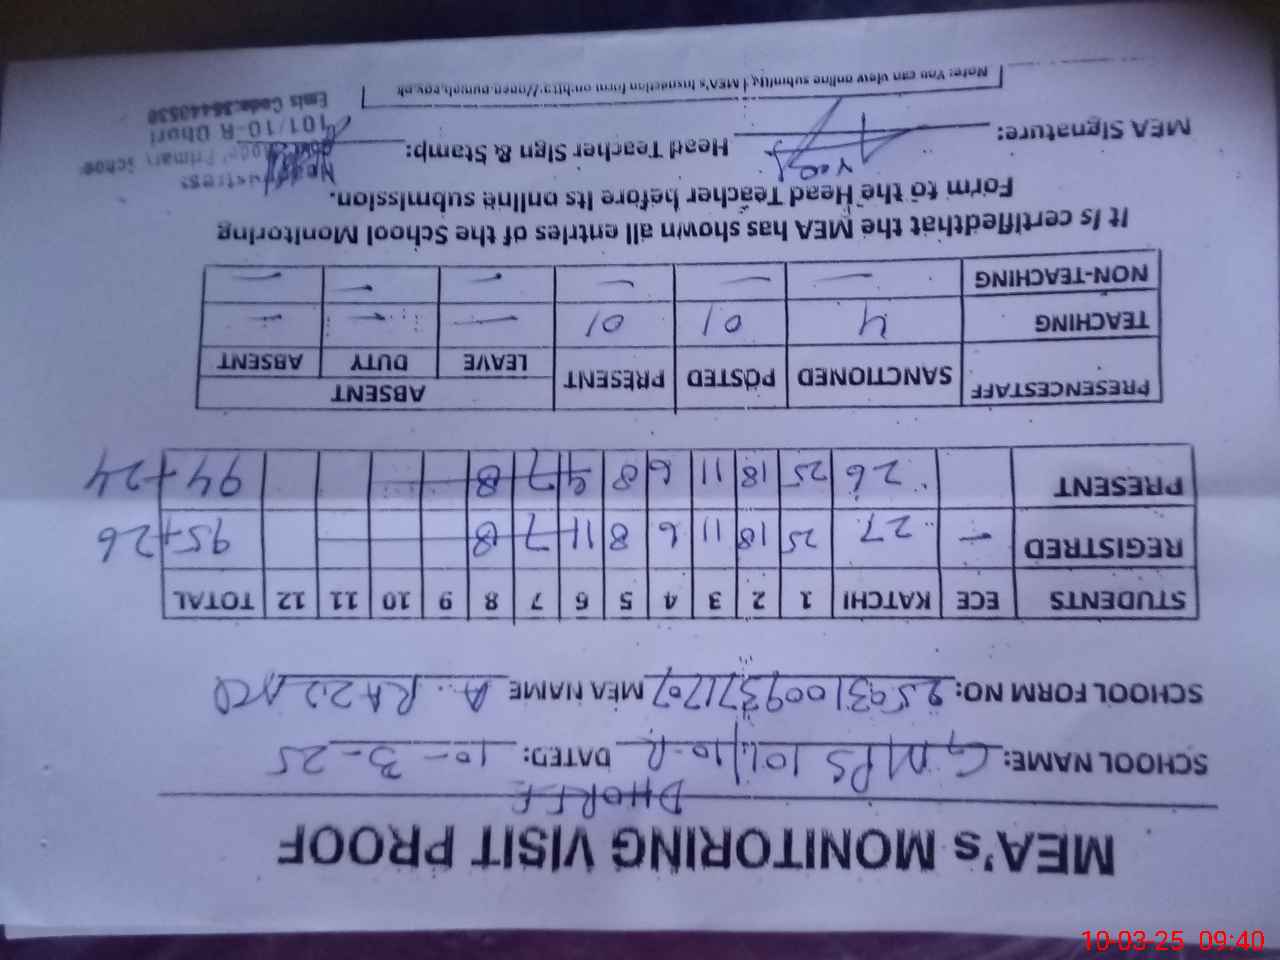 MEA's MONITORING VISIT PROOF
DHOREE
SCHOOL NAME: GMPS 101/10-R DATED: 10-3-25
SCHOOL FORM NO: 2503100937170 MEA NAME A. RAZZAQ
STUDENTS ECE KATCHI 1 2 3 4 5 6 7 8 9 10 11 12 TOTAL
REGISTRED — 27 25 18 11 6 8 11 7 8 95+26
PRESENT 26 25 18 11 6 8 9 7 8 94+24
PRESENCESTAFF SANCTIONED POSTED PRESENT ABSENT
LEAVE DUTY ABSENT
TEACHING 4 01 01 — — —
NON-TEACHING — — — — — —
It is certifiedthat the MEA has shown all entries of the School Monitoring
Form to the Head Teacher before its online submission.
MEA Signature: Head Teacher Sign & Stamp:
Primary School
101/10-R Dhori
Emis Code:36440530
Note: You can view online submitted MEA's Inspection form on http://open.punjab.gov.pk
10-03-25 09:40